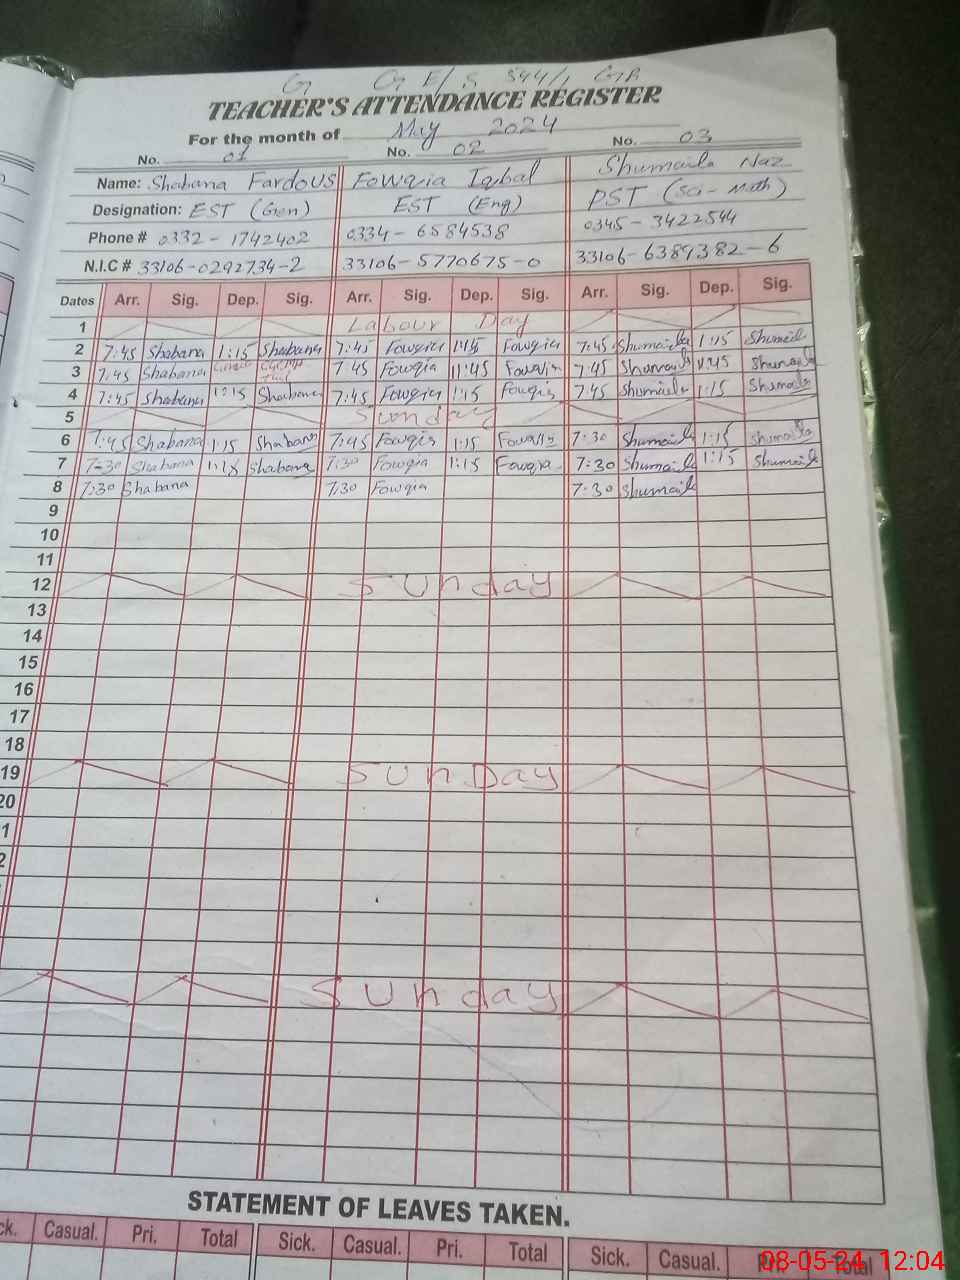 G G E/S 544/1 GR
TEACHER'S ATTENDANCE REGISTER
For the month of May 2024
No. 01 No. 02 No. 03
Name: Shabana Fardous Fowqia Iqbal Shumaila Naz
Designation: EST (Gen) EST (Eng) PST (Sci-Math)
Phone # 0332-1742402 0334-6584538 0345-3422544
N.I.C # 33106-0292734-2 33106-5770675-0 33106-6389382-6
Dates Arr. Sig. Dep. Sig. Arr. Sig. Dep. Sig. Arr. Sig. Dep. Sig.
1 Labour Day
2 7:45 Shabana 1:15 Shabana 7:45 Fowqia 1:15 Fowqia 7:45 Shumaila 1:15 Shumaila
3 7:45 Shabana 7:45 Fowqia 11:45 Fowqia 7:45 Shumaila 11:45 Shumaila
4 7:45 Shabana 1:15 Shabana 7:45 Fowqia 1:15 Fowqia 7:45 Shumaila 1:15 Shumaila
5 Sunday
6 7:45 Shabana 1:15 Shabana 7:45 Fowqia 1:15 Fowqia 7:30 Shumaila 1:15 Shumaila
7 7:30 Shabana 1:15 Shabana 7:30 Fowqia 1:15 Fowqia 7:30 Shumaila 1:15 Shumaila
8 7:30 Shabana 7:30 Fowqia 7:30 Shumaila
9
10
11
12 Sunday
13
14
15
16
17
18
19 SunDay
20
1
2
Sunday
STATEMENT OF LEAVES TAKEN.
ck. Casual. Pri. Total Sick. Casual. Pri. Total Sick. Casual. Pri. Total
08-05-24 12:04